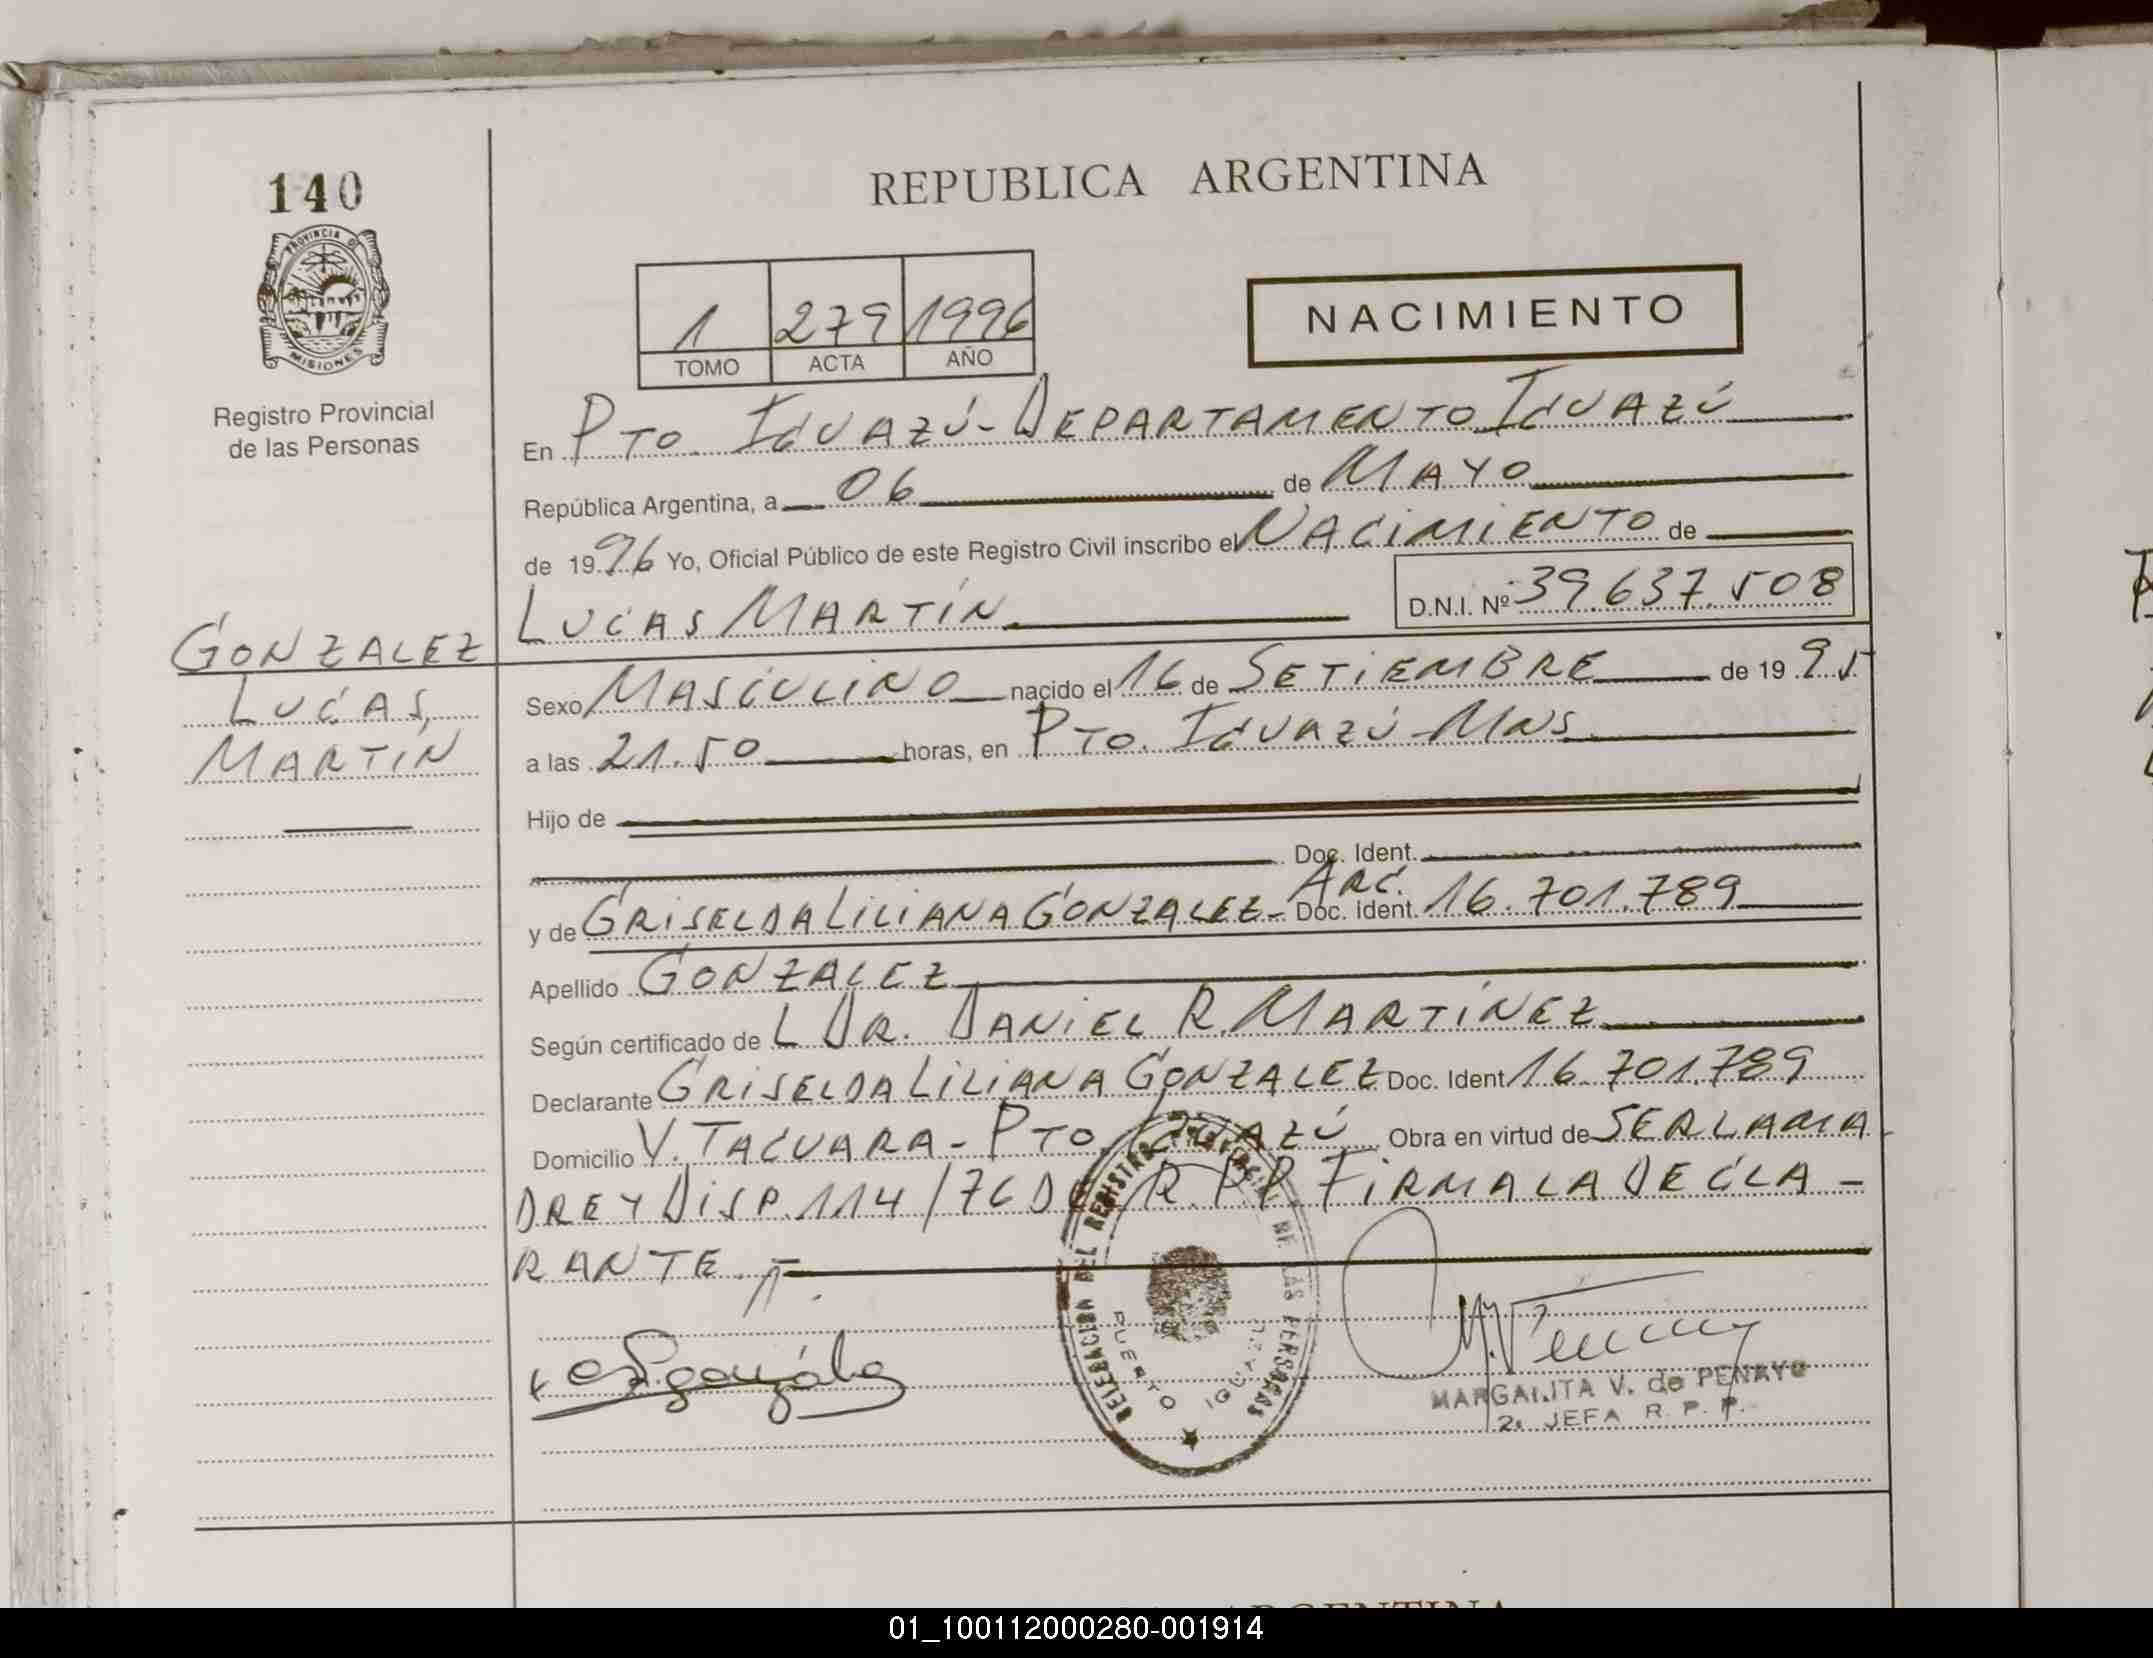 140
PROVINCIA DE
MISIONES
Registro Provincial
de las Personas
GONZALEZ
LUCAS,
MARTIN
REPUBLICA ARGENTINA
1 279 1996
TOMO ACTA AÑO
NACIMIENTO
En PTO. IGUAZÚ - DEPARTAMENTO IGUAZÚ
República Argentina, a 06 de MAYO
de 1996 Yo, Oficial Público de este Registro Civil inscribo el NACIMIENTO de
LUCAS MARTÍN D.N.I. Nº 39.637.508
Sexo MASCULINO nacido el 16 de SETIEMBRE de 1995
a las 21.50 horas, en PTO. IGUAZÚ - MNS
Hijo de
Doc. Ident.
ARG.
y de GRISELDA LILIANA GONZALEZ - Doc. Ident. 16.701.789
Apellido GONZALEZ
Según certificado de L DR. DANIEL R. MARTÍNEZ
Declarante GRISELDA LILIANA GONZALEZ Doc. Ident 16.701.789
Domicilio V. TACUARA - PTO. IGUAZÚ Obra en virtud de SER LA MA
DRE Y DISP. 114/76 D R.P.P. FIRMA LA DECLA -
RANTE.
DELEGACION DEL REGISTRO PROVINCIAL DE LAS PERSONAS
PUERTO IGUAZU
MARGARITA V. de PENAYO
2a JEFA R. P. P.
ARGENTINA
01_100112000280-001914